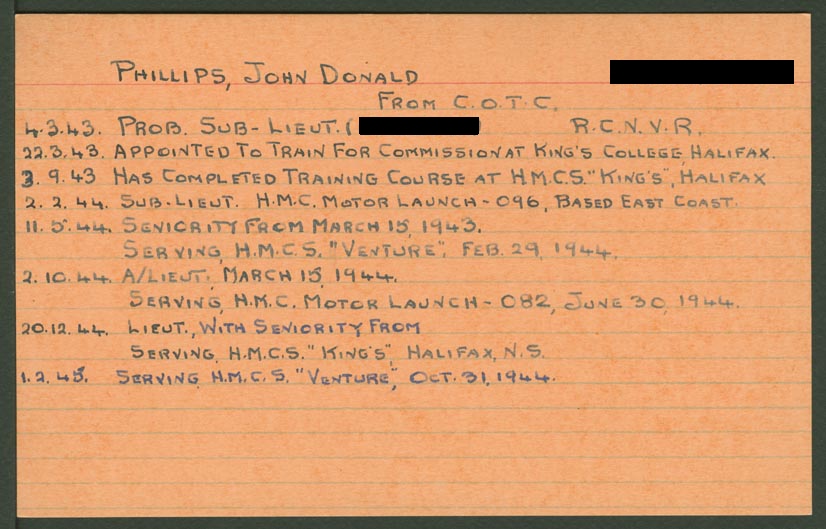 PHILLIPS, JOHN DONALD
FROM C.O.T.C.
4.3.43. PROB. SUB-LIEUT. ( R.C.N.V.R.
22.3.43. APPOINTED TO TRAIN FOR COMMISSION AT KING'S COLLEGE, HALIFAX.
3.9.43 HAS COMPLETED TRAINING COURSE AT H.M.C.S. "KING'S", HALIFAX
2.2.44. SUB-LIEUT. H.M.C. MOTOR LAUNCH-096, BASED EAST COAST.
11.5.44. SENIORITY FROM MARCH 15, 1943.
SERVING, H.M.C.S. "VENTURE", FEB. 29, 1944.
2.10.44. A/LIEUT., MARCH 15, 1944.
SERVING, H.M.C. MOTOR LAUNCH-082, JUNE 30, 1944.
20.12.44. LIEUT., WITH SENIORITY FROM
SERVING, H.M.C.S. "KING'S", HALIFAX, N.S.
1.2.45. SERVING, H.M.C.S. "VENTURE", OCT. 31, 1944.